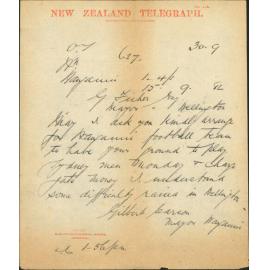 NEW ZEALAND TELEGRAPH.
30-9
627
Wanganui
15 9 82
G Fisher Esq
Mayor Wellington
May I ask you kindly arrange
for Wanganui football team
to have your ground to play
Sydney men Monday &
gate money I understand
some difficulty raised in Wellington
Gilbert Carson
Mayor Wanganui